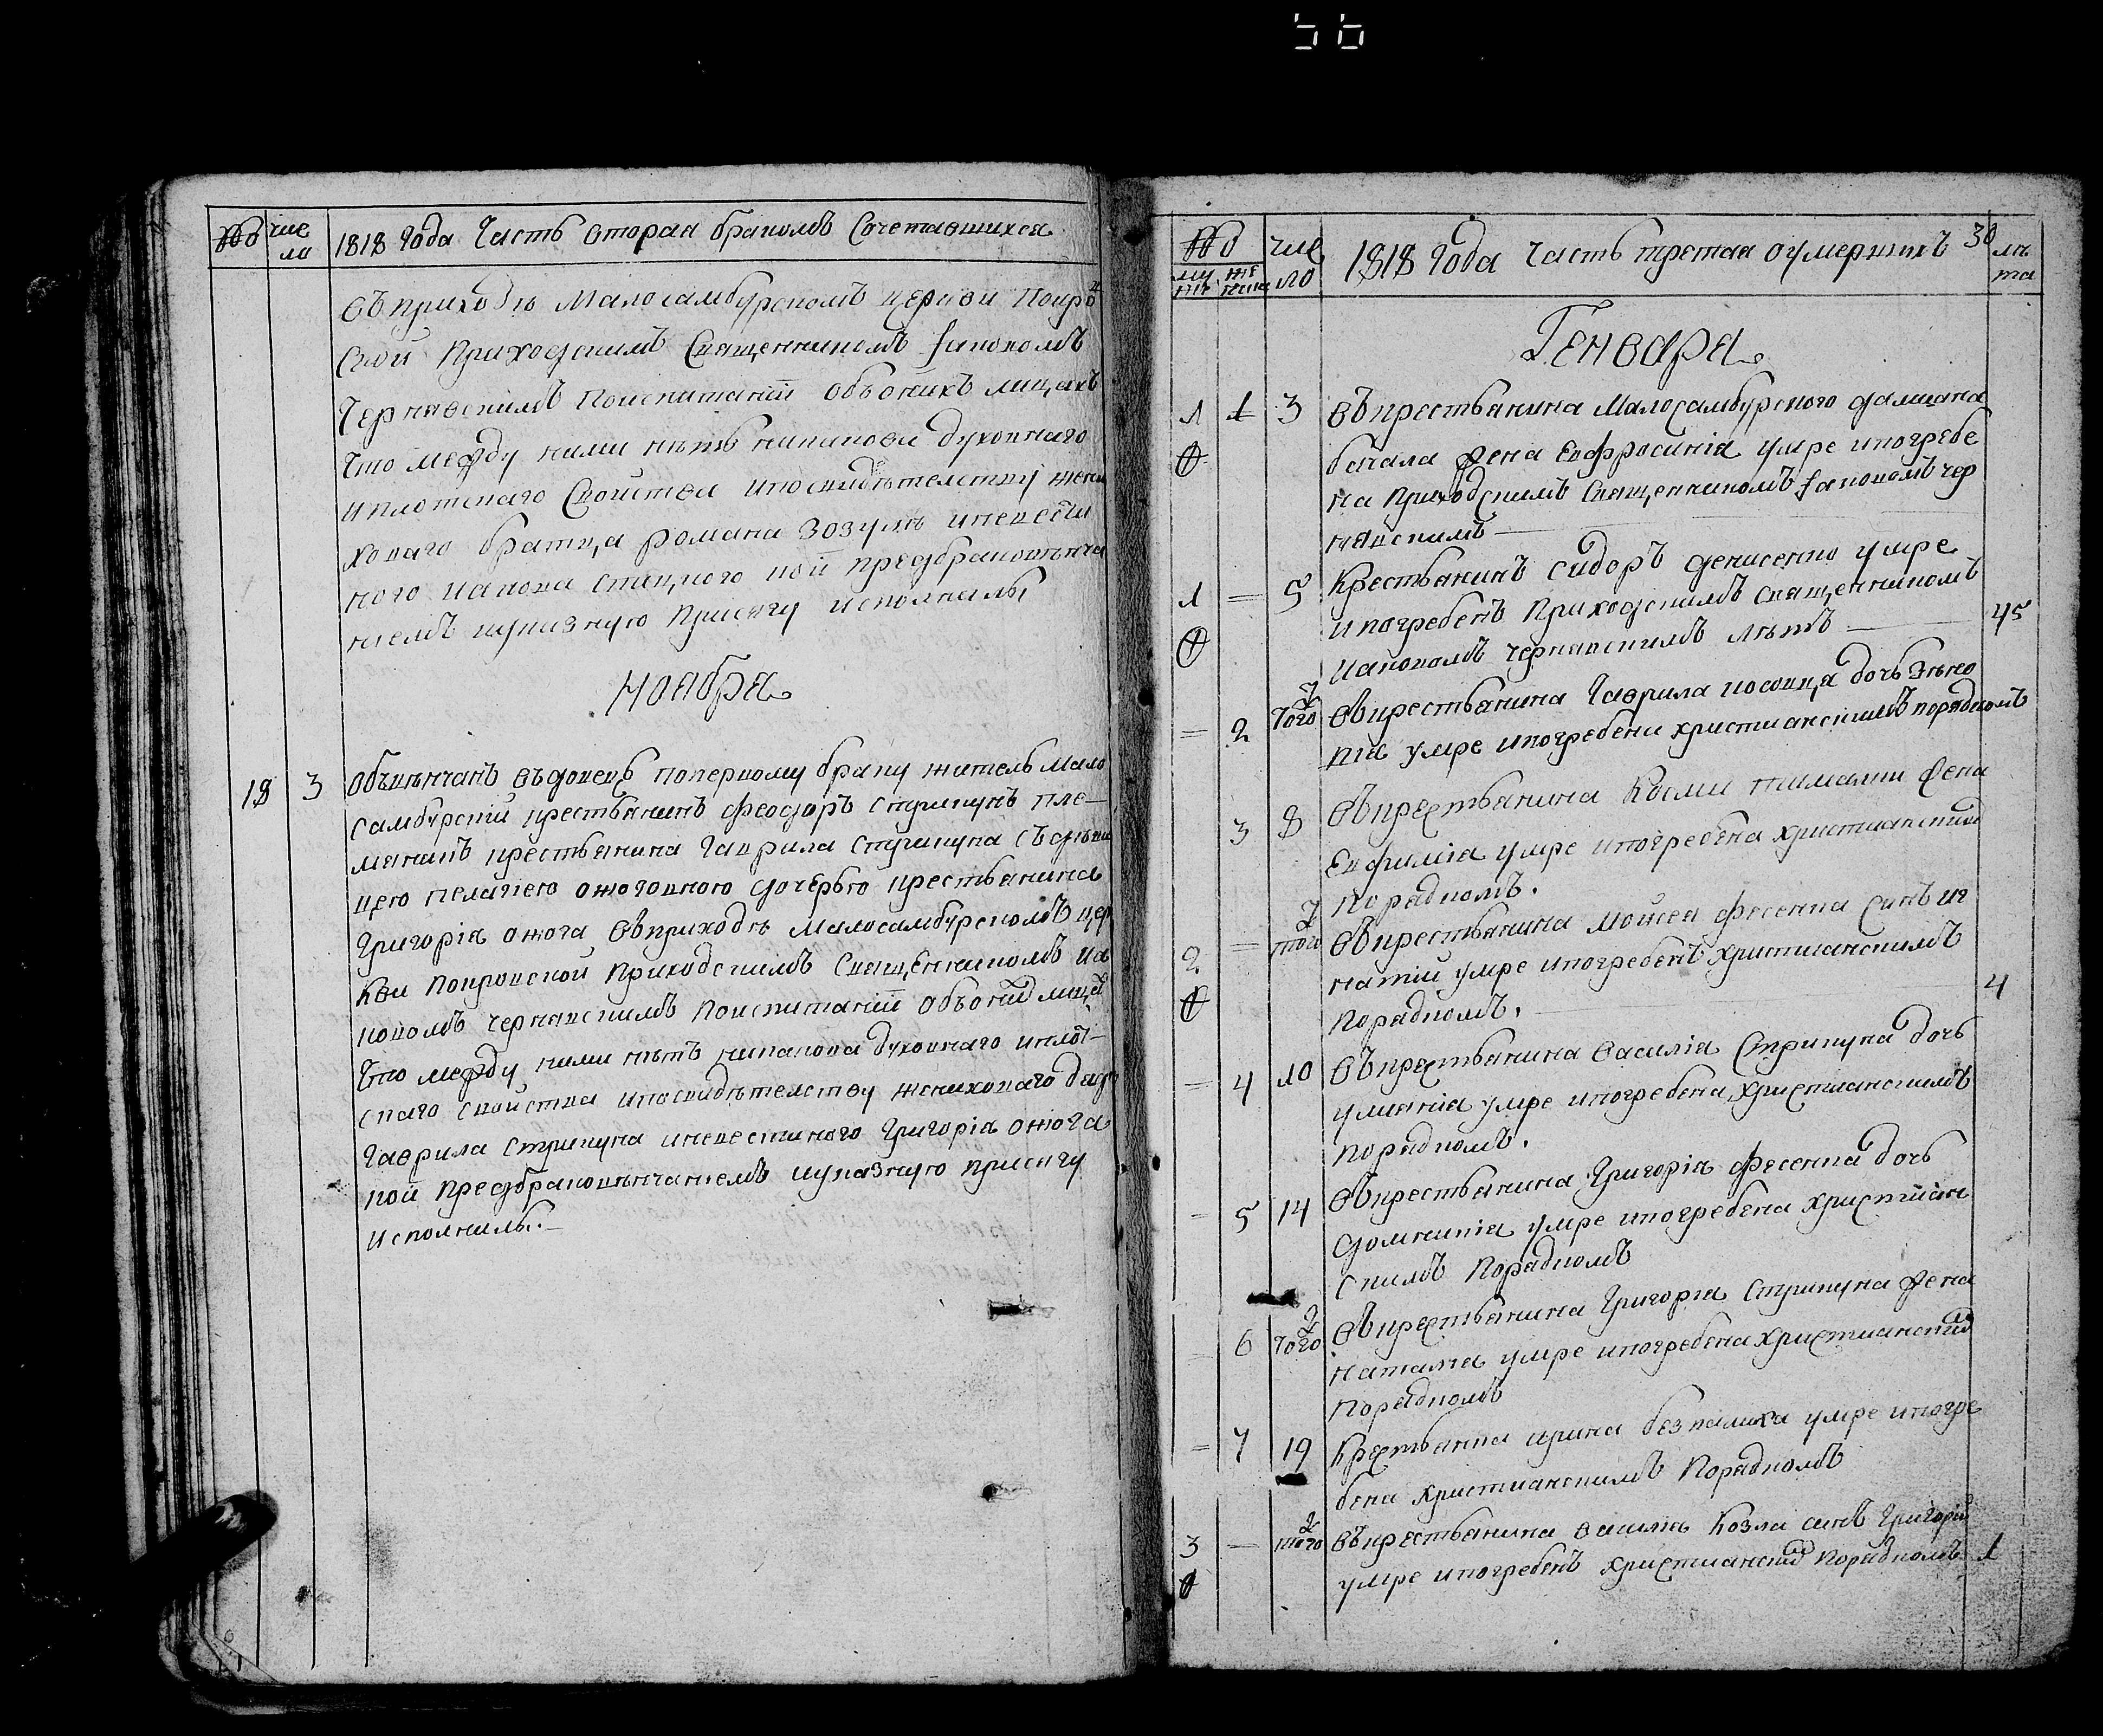 56
№
чис
ло
1818 Года Часть вторая бракомъ Сочетавшихся
въ приходѣ Малосамбурскомъ церкви Покро
Скои Приходскимъ Священникомъ Іаковомъ
Чернявскимъ Поиспитаніи обьоихъ лицахъ
Что между ними нѣтъ никакова духовнаго
и плотскаго Свойства ипосвидѣтелству жени
ховаго братца романа Зозулѣ иневѣсти
ного Иакова
нїемъ иуказную Присягу исполнилы
Ноября
18
3
Объвѣнчанъ въдовецъ поперному браку житель Мало
самбурскїй крестьянинъ феодоръ Стрикунъ пле-
мянникъ крестьянина Гаврила Стрикуна съ дѣви
цею пелагїею ожоговною дочерью крестьянина
Григорїя ожога въприходѣ Малосамбурскомъ цер
кви Покровской Приходскимъ Священникомъ Иа
ковомъ чернявскимъ Поиспитаніи объ онихъ лицахъ
Что между ними нѣтъ никакова духовнаго иплот-
скаго свойства ипосвидѣтелству жениховаго дяд
Гаврила Стрикуна иневестиного Григорїя ожога
кои предбраковѣнчанїемъ иуказную присягу
Исполнилы.
№
му
жс
же
нск
чис
ло
1818 Года Часть третая оумершихъ
30
лѣ
та
Генваря
1
1
3
въкрестьянина Малосамбурского далмана
бичала жена Евфросинїя умре ипогребе
на Приходскимъ Священникомъ Іаковомъ чер
нявскимъ
1
=
5
Крестьянинъ Сидоръ денисенко умре
и погребенъ Приходскимъ Священникомъ
Иаковомъ чернявскимъ лѣтъ
45
=
2
Того
Вкрестьянина Гаврила косовца дочь Зѣно
вїя умре ипогребена христианскимъ порядкомъ
3
8
Въкрестьянина Козми жена
Евфимїя умре ипогребена христианским
Порядкомъ.
2
=
того
Вкрестьянина Мойсея фесенка Синъ иг
натїй умре ипогребенъ христианскимъ
Порядкомъ.
4
=
4
10
Въкрестьянина василїя Стрикуна дочь
улиянїя умре ипогребена христианскимъ
порядкомъ.
=
5
14
Вкрестьянина Григорїя фесенка дочь
домникїя умре ипогребена христїан
скимъ Порядкомъ
6
Того
Въкрестьянина Григорїя Стрикуна жена
наталїя умре ипогребена христианским
Порядкомъ
=
7
19
Крестьянка ирина безпалиха умре ипогре
бена христианскимъ Порядкомъ
3
=
того
Въкрестьянина василїя Козла синъ Григорїй
умре ипогребенъ христианским Порядкомъ
1